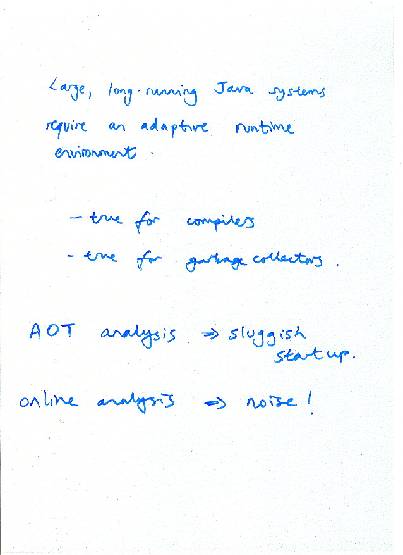 Large, long-running Java systems
require an adaptive runtime
environment.
- true for compilers
- true for garbage collectors.
AOT analysis ⇒ sluggish
startup.
online analysis ⇒ noise!